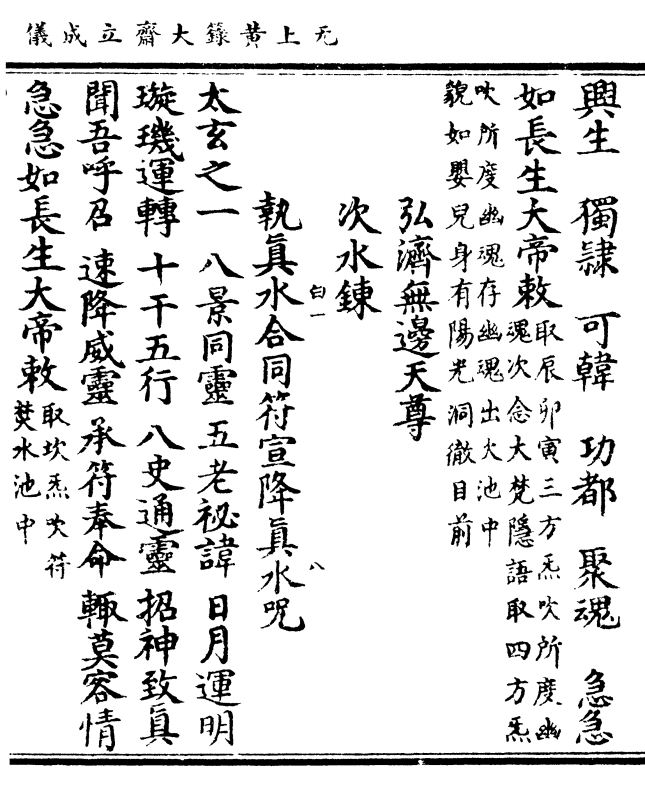 无上黄籙大齋立成儀
興生 獨隸 可韓 功都 聚魂 急急
如長生大帝敕
取辰卯寅三方炁吹所度幽
魂次念大梵隱語取四方炁
吹所度幽魂存幽魂出火池中
貌如嬰兒身有陽光洞徹目前
弘濟無邊天尊
次水鍊
白一
執眞水合同符宣降眞水呪
八
太玄之一 八景同靈 五老祕諱 日月運明
璇璣運轉 十干五行 八史通靈 招神致眞
聞吾呼召 速降威靈 承符奉命 輙莫容情
急急如長生大帝敕
取坎炁吹符
焚水池中